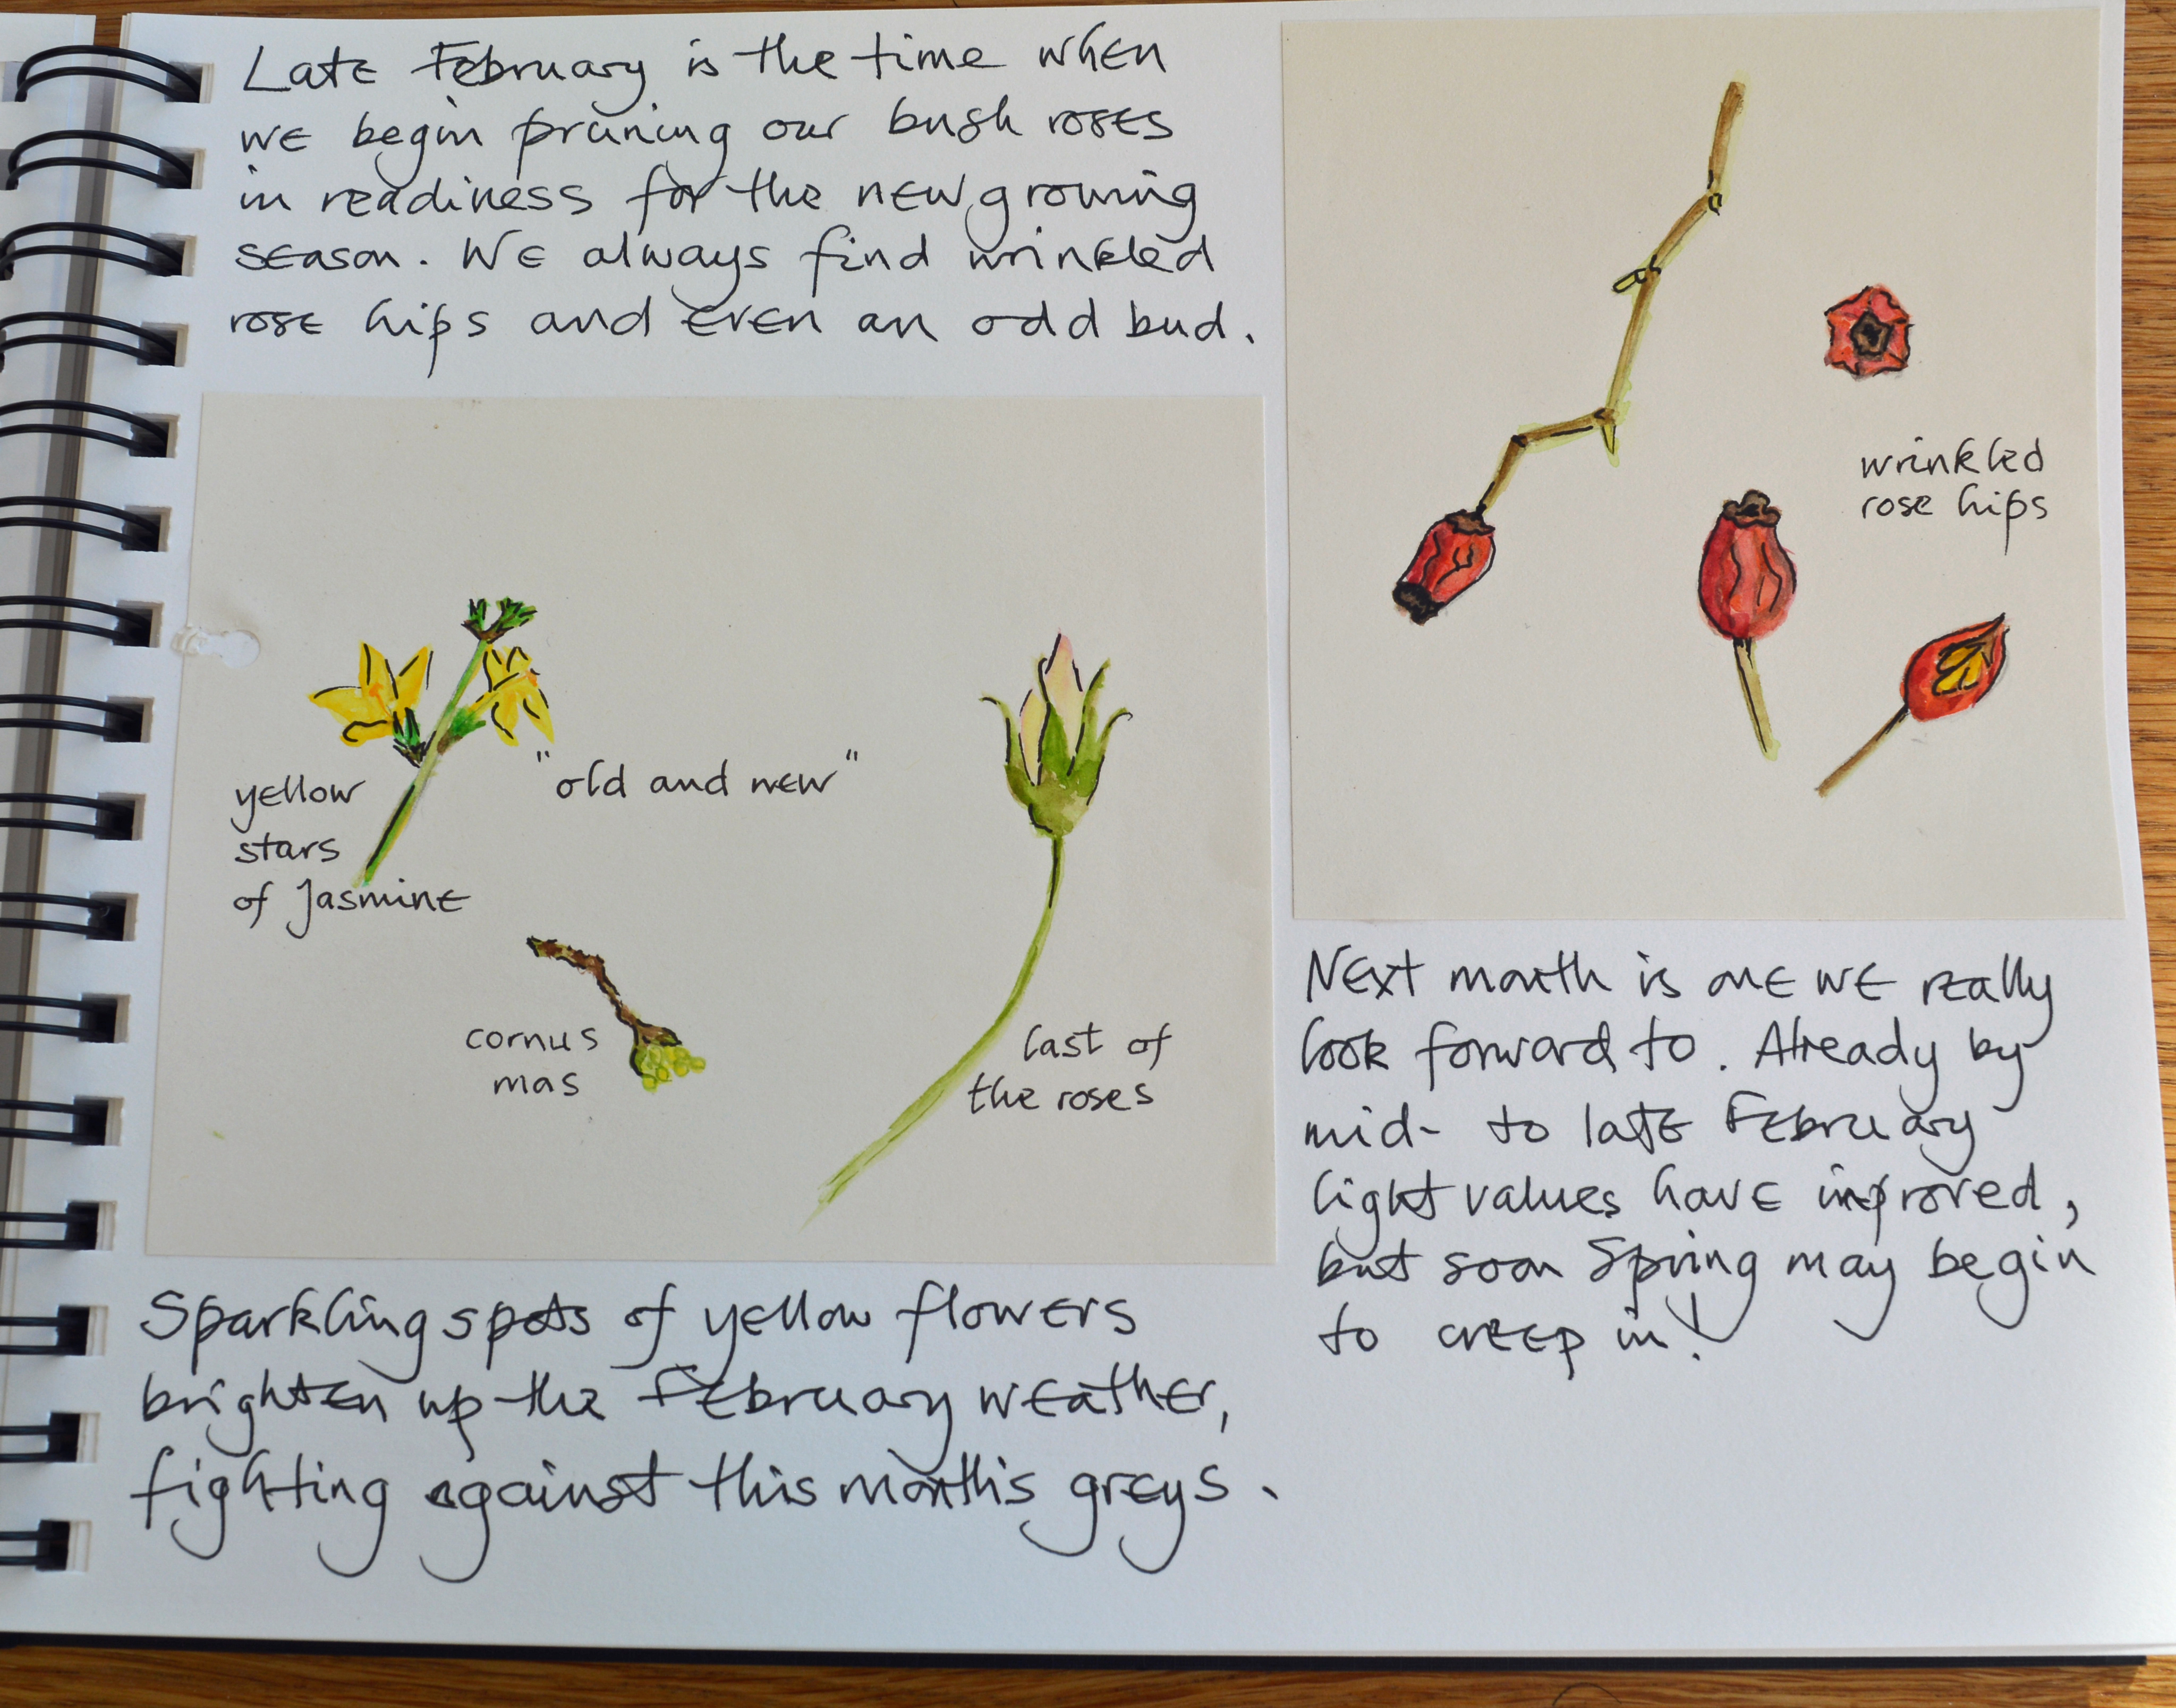 Late February is the time when
we begin pruning our bush roses
in readiness for the new growing
season. We always find wrinkled
rose hips and even an odd bud.
yellow
stars
of Jasmine
"old and new"
cornus
mas
last of
the roses
Sparkling spots of yellow flowers
brighten up the February weather,
fighting against this month's greys.
wrinkled
rose hips
Next month is one we really
look forward to. Already by
mid- to late February
light values have improved,
but soon Spring may begin
to creep in!